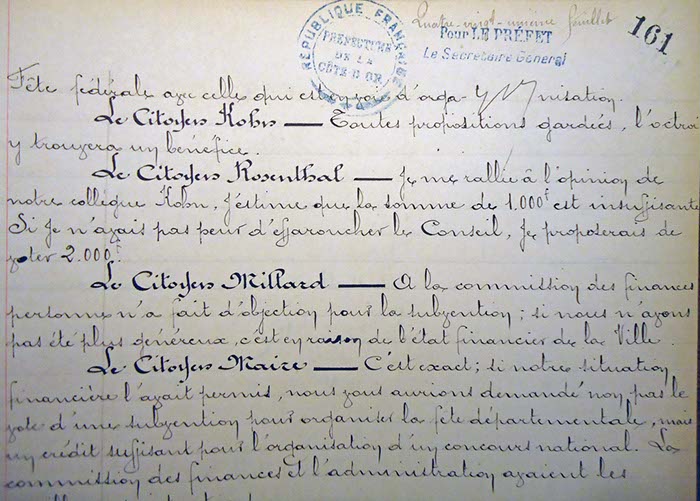 Quatre-vingt-unième feuillet
161
RÉPUBLIQUE FRANÇAISE
PRÉFECTURE
DE LA
CÔTE D'OR
Pour LE PRÉFET
Le Secrétaire Général
Fête fédérale avec celle qui est en voie d'orga-nisation.
Le Citoyen Kohn — Toutes propositions gardées, l'octroi
y trouvera un bénéfice.
Le Citoyen Rosenthal — Je me rallie à l'opinion de
notre collègue Kohn, j'estime que la somme de 1.000f est insuffisante
Si je n'avais pas peur d'effaroucher le Conseil, je proposerais de
voter 2.000f.
Le Citoyen Millard — A la commission des finances
personne n'a fait d'objection pour la subvention ; si nous n'avons
pas été plus généreux, c'est en raison de l'état financier de la Ville.
Le Citoyen Maire — C'est exact ; si notre situation
financière l'avait permis, nous vous aurions demandé non pas le
vote d'une subvention pour organiser la fête départementale, mais
un crédit suffisant pour l'organisation d'un concours national. La
commission des finances et l'administration avaient les